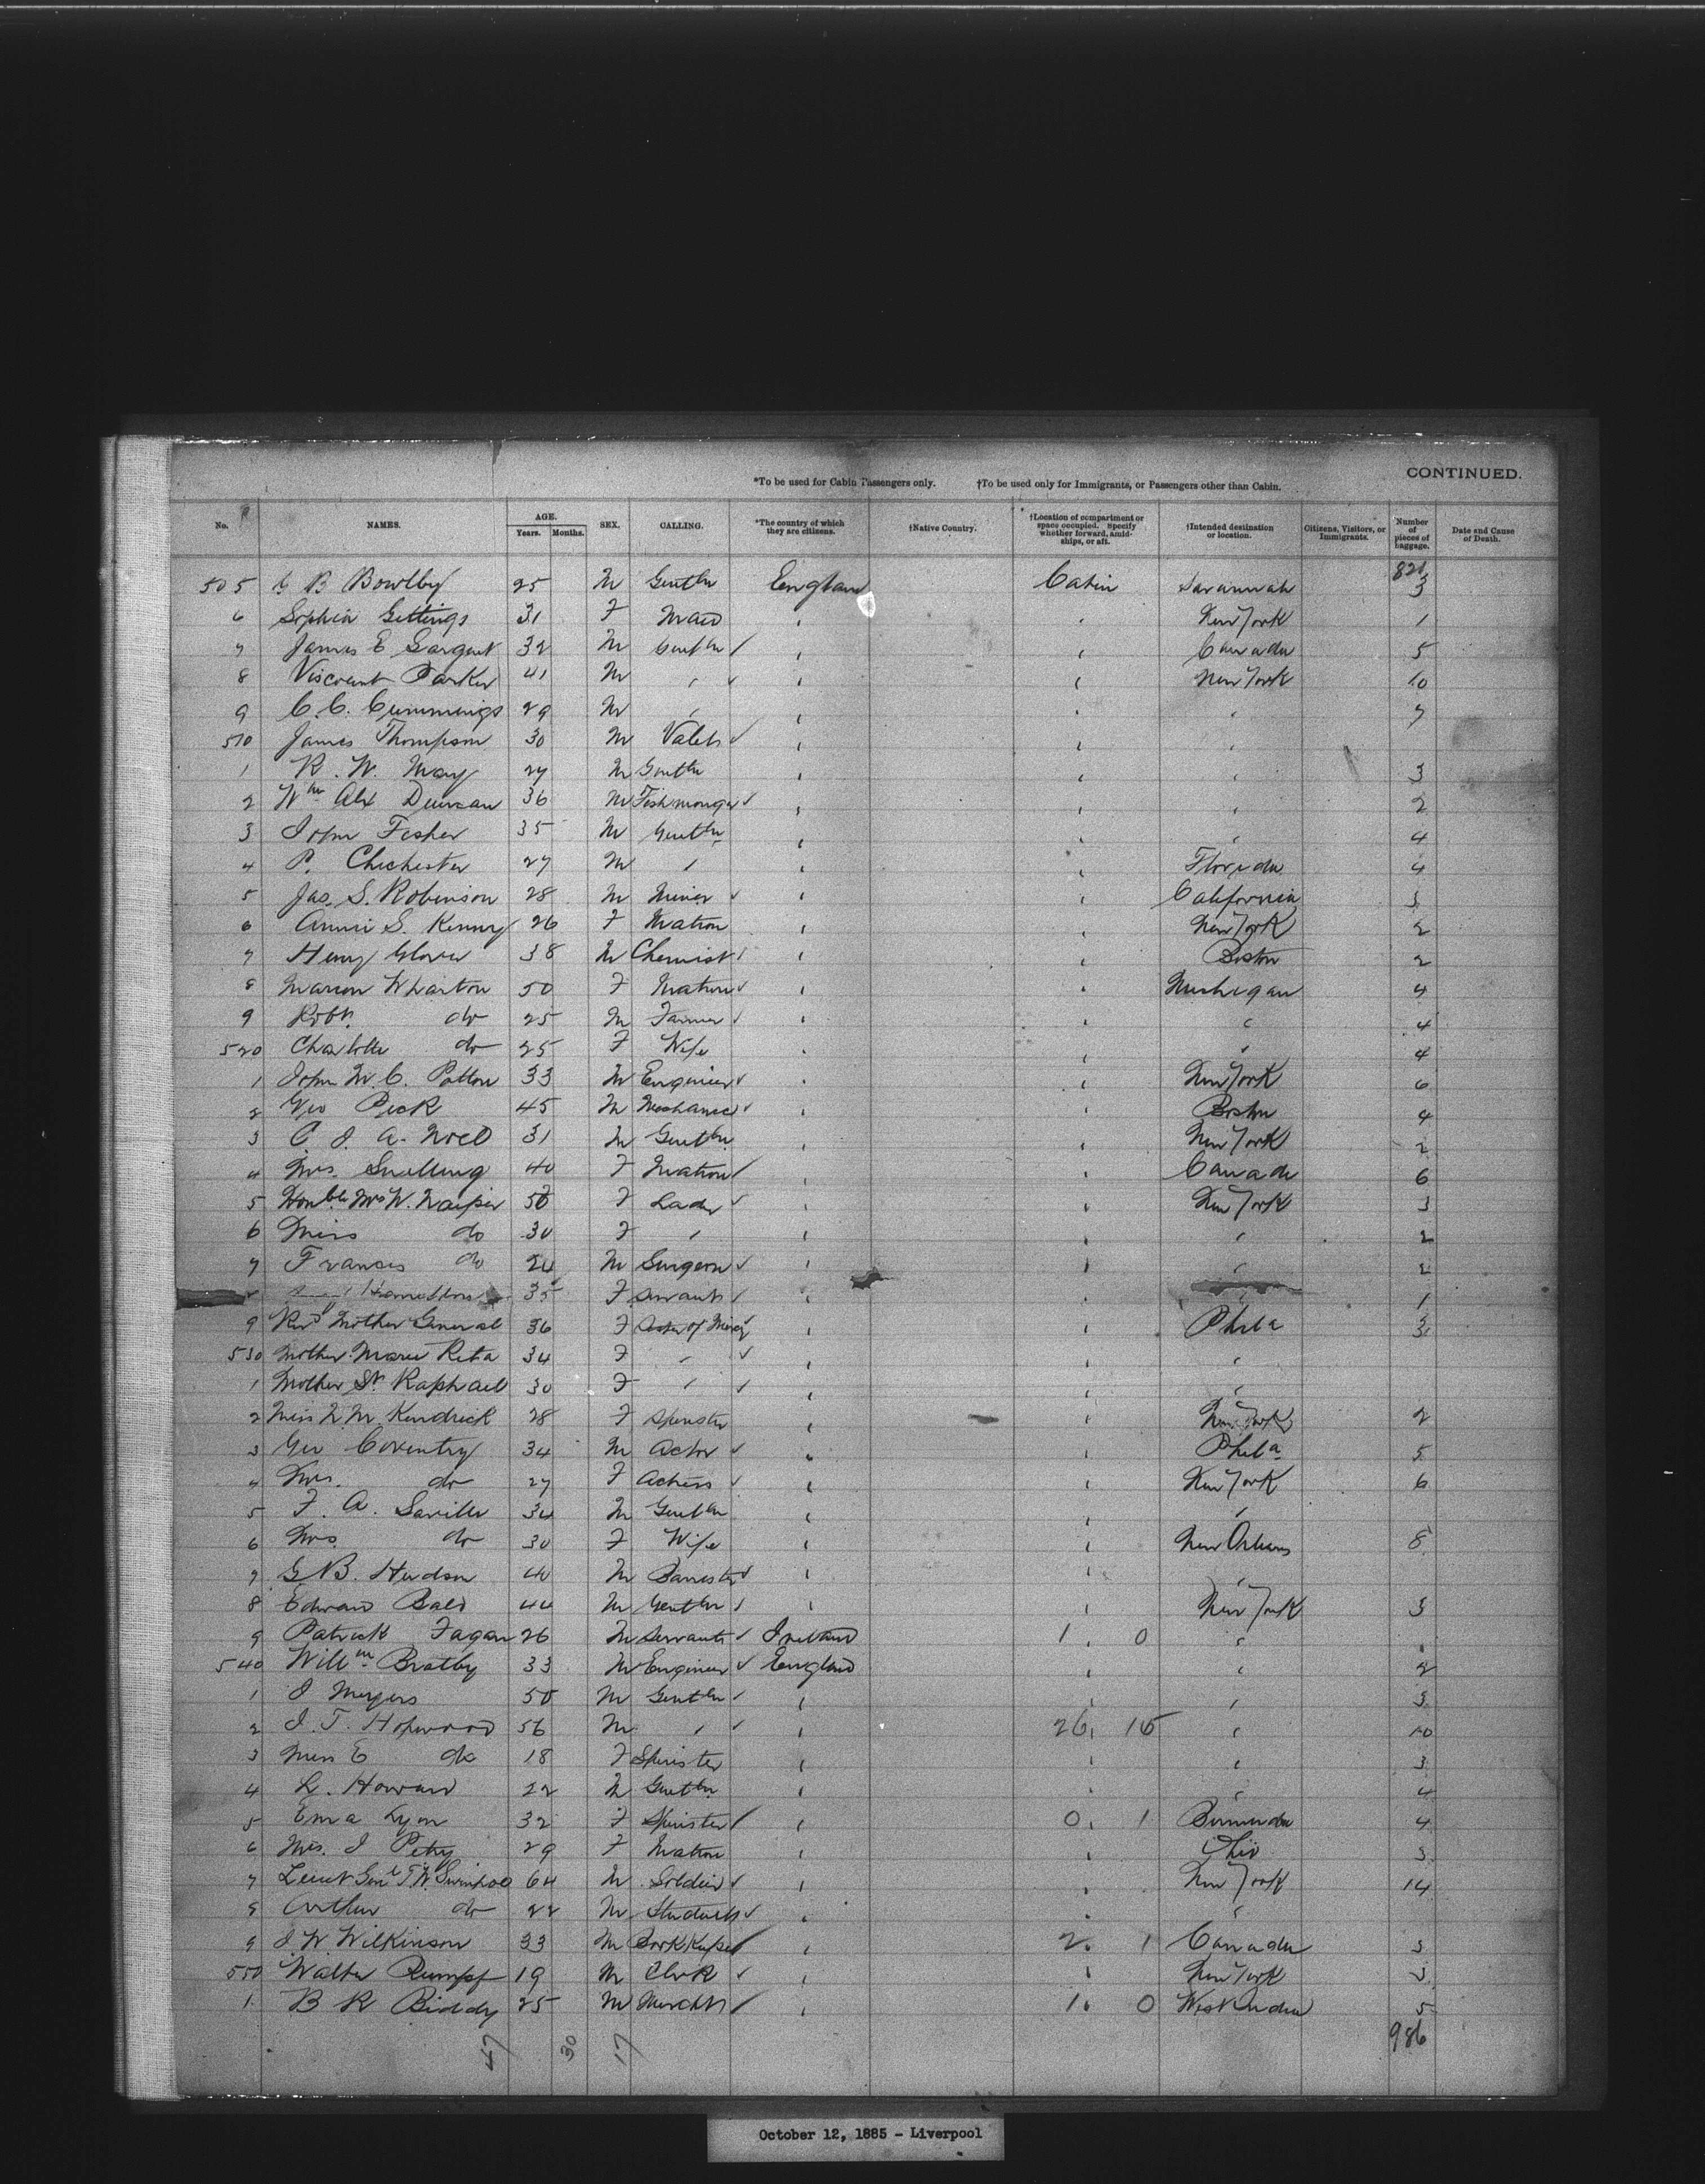 CONTINUED.
*To be used for Cabin Passengers only. †To be used only for Immigrants, or Passengers other than Cabin.
No. NAMES. AGE. Years. Months. SEX. CALLING. *The country of which they are citizens. †Native Country. †Location of compartment or space occupied. Specify whether forward, amidships, or aft. †Intended destination or location. Citizens, Visitors, or Immigrants. Number of pieces of baggage. Date and Cause of Death.
821
505 B Bowlby 25 M Gentln England Cabin Savannah 3
6 Sophia Gettings 31 F Maid " " New York 1
7 James E Sargent 32 M Gentln " " Canada 5
8 Viscount Parker 41 M " " " New York 10
9 C. C. Cummings 29 M " " " " 7
510 James Thompson 30 M Valet " " "
1 R. W. May 27 M Gentln " " " 3
2 Wm Alx Duncan 36 M Fishmonger " " " 2
3 John Fisher 35 M Gentln " " " 4
4 P. Chichester 27 M " " " Florida 4
5 Jas. S. Robinson 28 M Miner " " California 3
6 Annie S. Kenny 26 F Matron " " New York 2
7 Henry Glover 38 M Chemist " " Boston 2
8 Marion Wharton 50 F Matron " " Michigan 4
9 Robt. do 25 M Farmer " " " 4
520 Charlotte do 25 F Wife " " " 4
1 John M. C. Patton 33 M Engineer " " New York 6
2 Geo Peck 45 M Mechanic " " Boston 4
3 C J. A. Noel 31 M Gentln " " New York 2
4 Mrs. Snelling 40 F Matron " " Canada 6
5 Honble Mrs W. Napier 50 F Lady " " New York 3
6 Miss do 30 F " " " " 2
7 Francis do 24 M Surgeon " " " 2
8 Hamilton 35 F Servant " " 1
9 Revd Mother General 36 F Sister of Mercy " " Phila 3
530 Mother Marie Rita 34 F " " " "
1 Mother St. Raphael 30 F " " " "
2 Miss M. Kendrick 28 F Spinster " " New York 2
3 Geo Coventry 34 M Actor " " Phila 5
4 Mrs. do 27 F Actress " " New York 6
5 F. A. Saville 34 M Gentln " " "
6 Mrs. do 30 F Wife " " New Orleans 8
7 G B. Hudson 40 M Barrister " " "
8 Edward Bald 44 M Gentln " " New York 3
9 Patrick Fagan 26 M Servant Ireland 1 " 0 "
540 Willm Bratby 33 M Engineer England " " 2
1 J Meyers 50 M Gentln " " " 3
2 J. T. Hopwood 56 M " " 26 " 15 " 10
3 Miss E do 18 F Spinster " " " 3
4 L. Howard 22 M Gentln " " " 4
5 Ema Lyon 32 F Spinster " 0 " 1 Bermuda 4
6 Mrs. J Petry 29 F Matron " " Ohio 3
7 Lieut Genl T. W. 64 M Soldier " " New York 14
8 Arthur do 22 M Student " " "
9 J. W Wilkinson 33 M Book Keeper " 2 " 1 Canada 3
550 Walter Rumpf 19 M Clerk " " New York 3
1 B R Biddy 25 M Mercht " 1 " 0 West India 5
47 30 17 986
October 12, 1885 - Liverpool